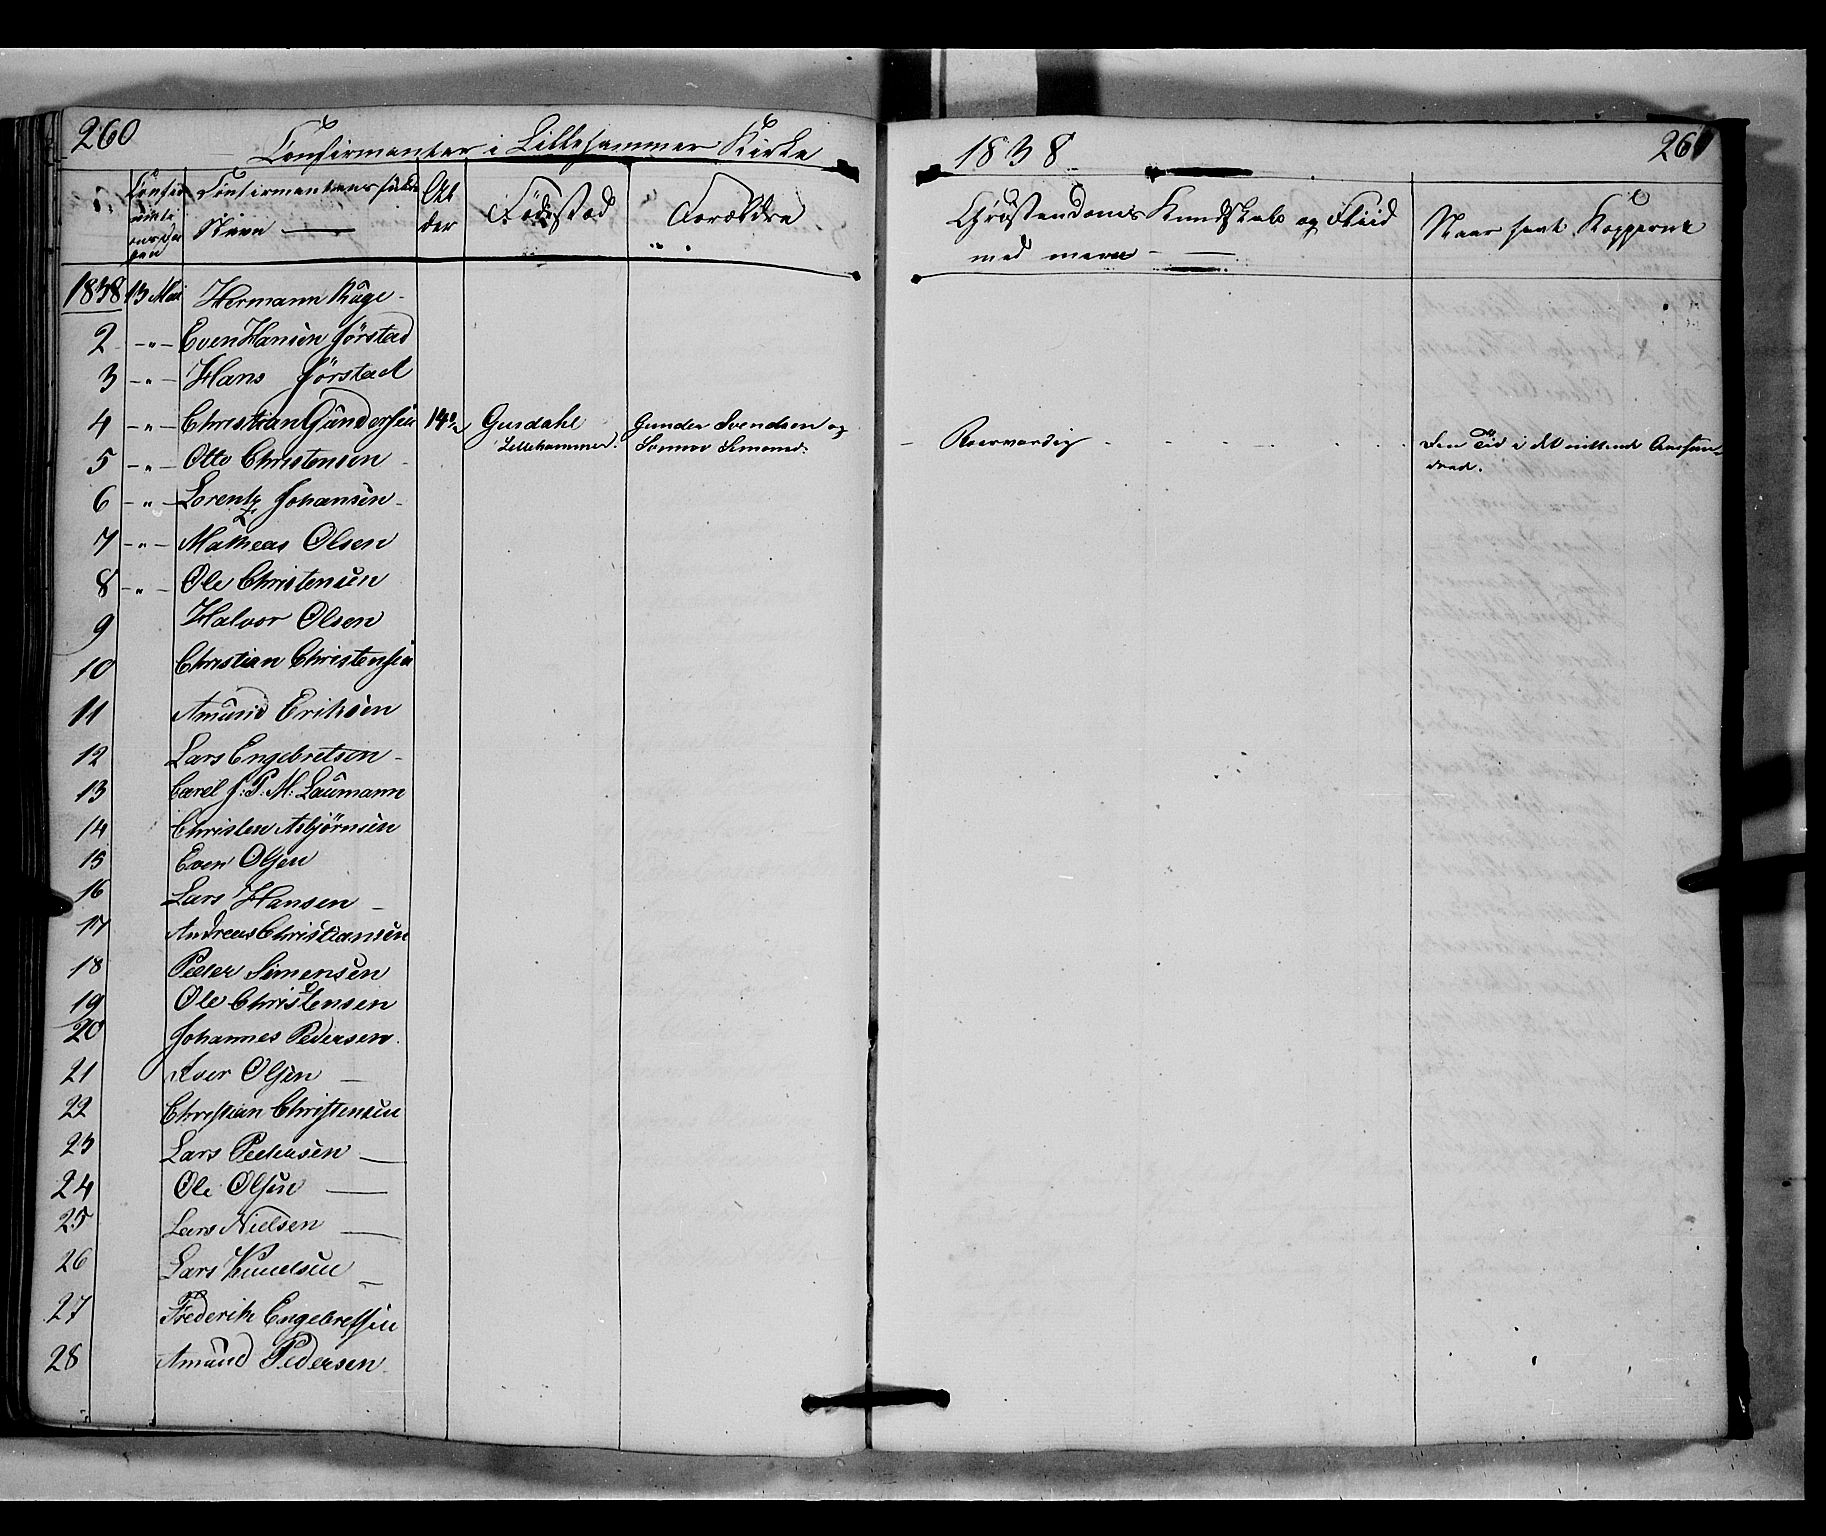 260
Confirmanter i Lillehammer Kirke
1838
261
Confir
Confirmanternes fulde
Navn
Al
der
Födestæd
Forældre
Christendoms Kundskab og Fliid
med mere
Naar havt Kopperne
1838 13 Mai Hermann Ruge
2 -"- Even Hansen Jörstad
3 -"- Hans Jörstad
4 -"- Christian Gundersen Gusdahl Gunder Svendsen og
Lillehammer Simens:
5 -"- Otto Christensen
Den Tid i det nittende Aarhun-
dred.
6 -"- Lorentz Johansen
7 -"- Matheas Olsen
8 -"- Ole Christensen
9 Halvor Olsen
10 Christian Christensen
11 Amund Eriksen
12 Lars Engebretsen
13 Carel J: P: M: Laumann
14 Christen Asbjörnsen
15 Even Olsen
16 Lars Hansen
17 Andreas Christiansen
18 Peder Simensen
19 Ole Christensen
20 Johannes Pedersen
21 Iver Olsen
22 Christian Christensen
23 Lars Pedersen
24 Ole Olsen
25 Lars Nielsen
26 Lars Knudsen
27 Frederik Engebretsen
28 Amund Pedersen